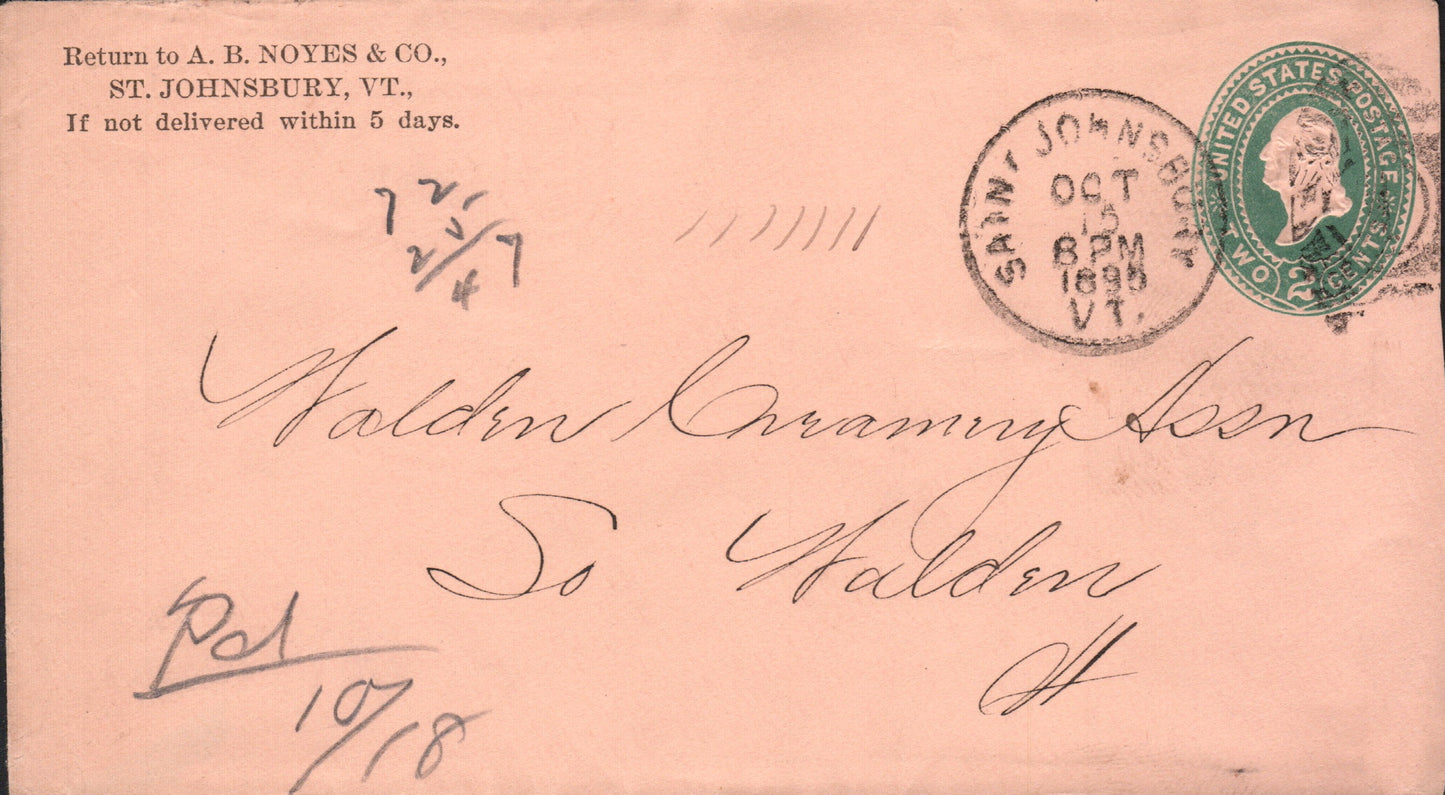 Return to A. B. NOYES & CO.,
ST. JOHNSBURY, VT.,
If not delivered within 5 days.
SAINT JOHNSBURY
OCT
15
8 PM
1895
VT.
UNITED STATES POSTAGE
TWO 2 CENTS
Walden Creamery Assn
So Walden
Vt
Pd
10/18